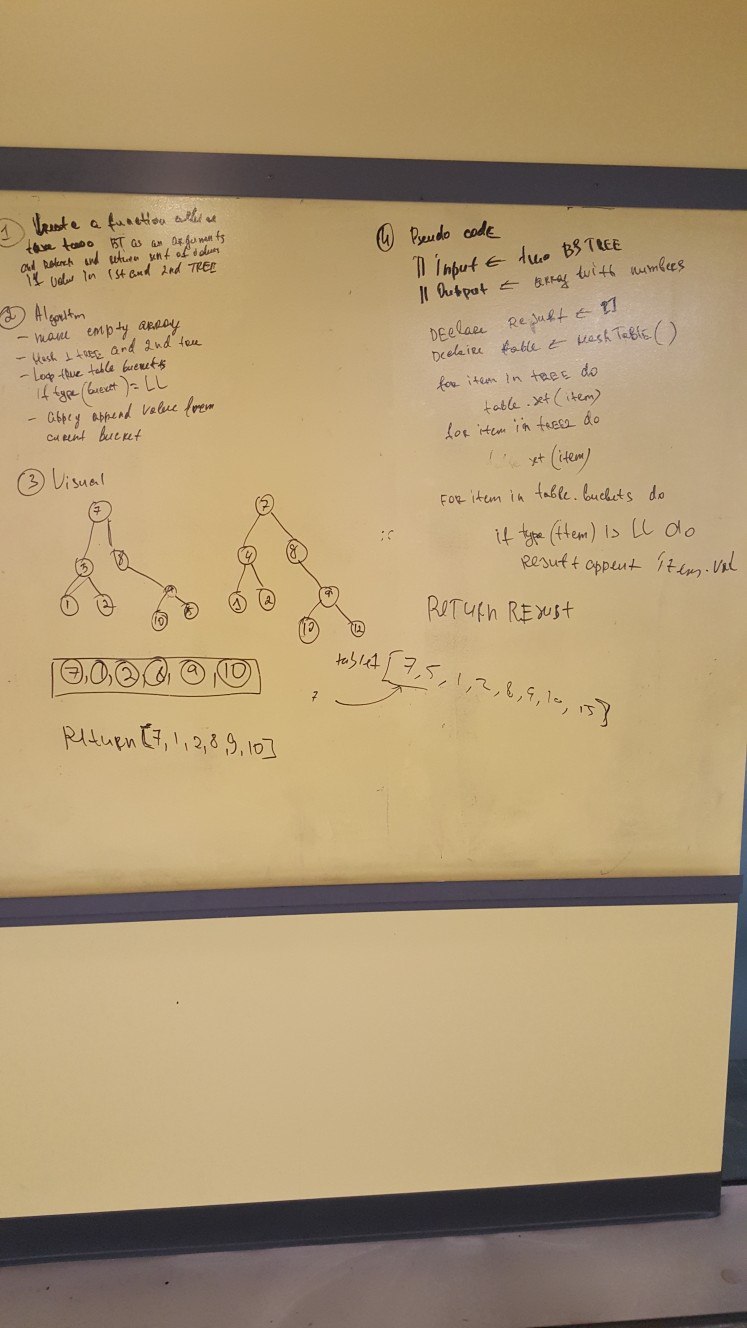 1
Create a function
two BT as an arguments
and return set of values
if value in 1st and 2nd TREE
2 Algorithm
- make empty array
- Hash 1 TREE and 2nd tree
- Loop table buckets
if type (bucket) = LL
- append value from
current bucket
3 Visual
7
3 8
1 12
10
7
4 8
1 2 9
10 12
7, 1, 2, 8, 9, 10
RETURN [7, 1, 2, 8, 9, 10]
4 Pseudo code
|| Input ← two BSTREE
|| Output ← array with numbers
DEclare Result ← []
Declare table ← HashTable()
for item in TREE do
table.set(item)
for item in tree2 do
set(item)
FOR item in table.buckets do
if type (item) is LL do
Result append item.val
RETURN RESULT
table1 [7, 5, 1, 2, 8, 9, 10, 15]
?